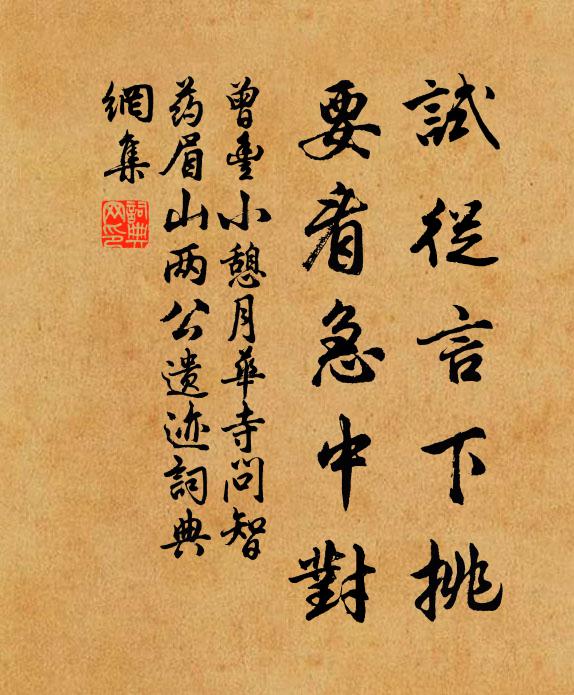 試從言下挑
要看急中對
曾豐小憩月華寺問智
药眉山两公遗迹詞典
網集
詞典网印